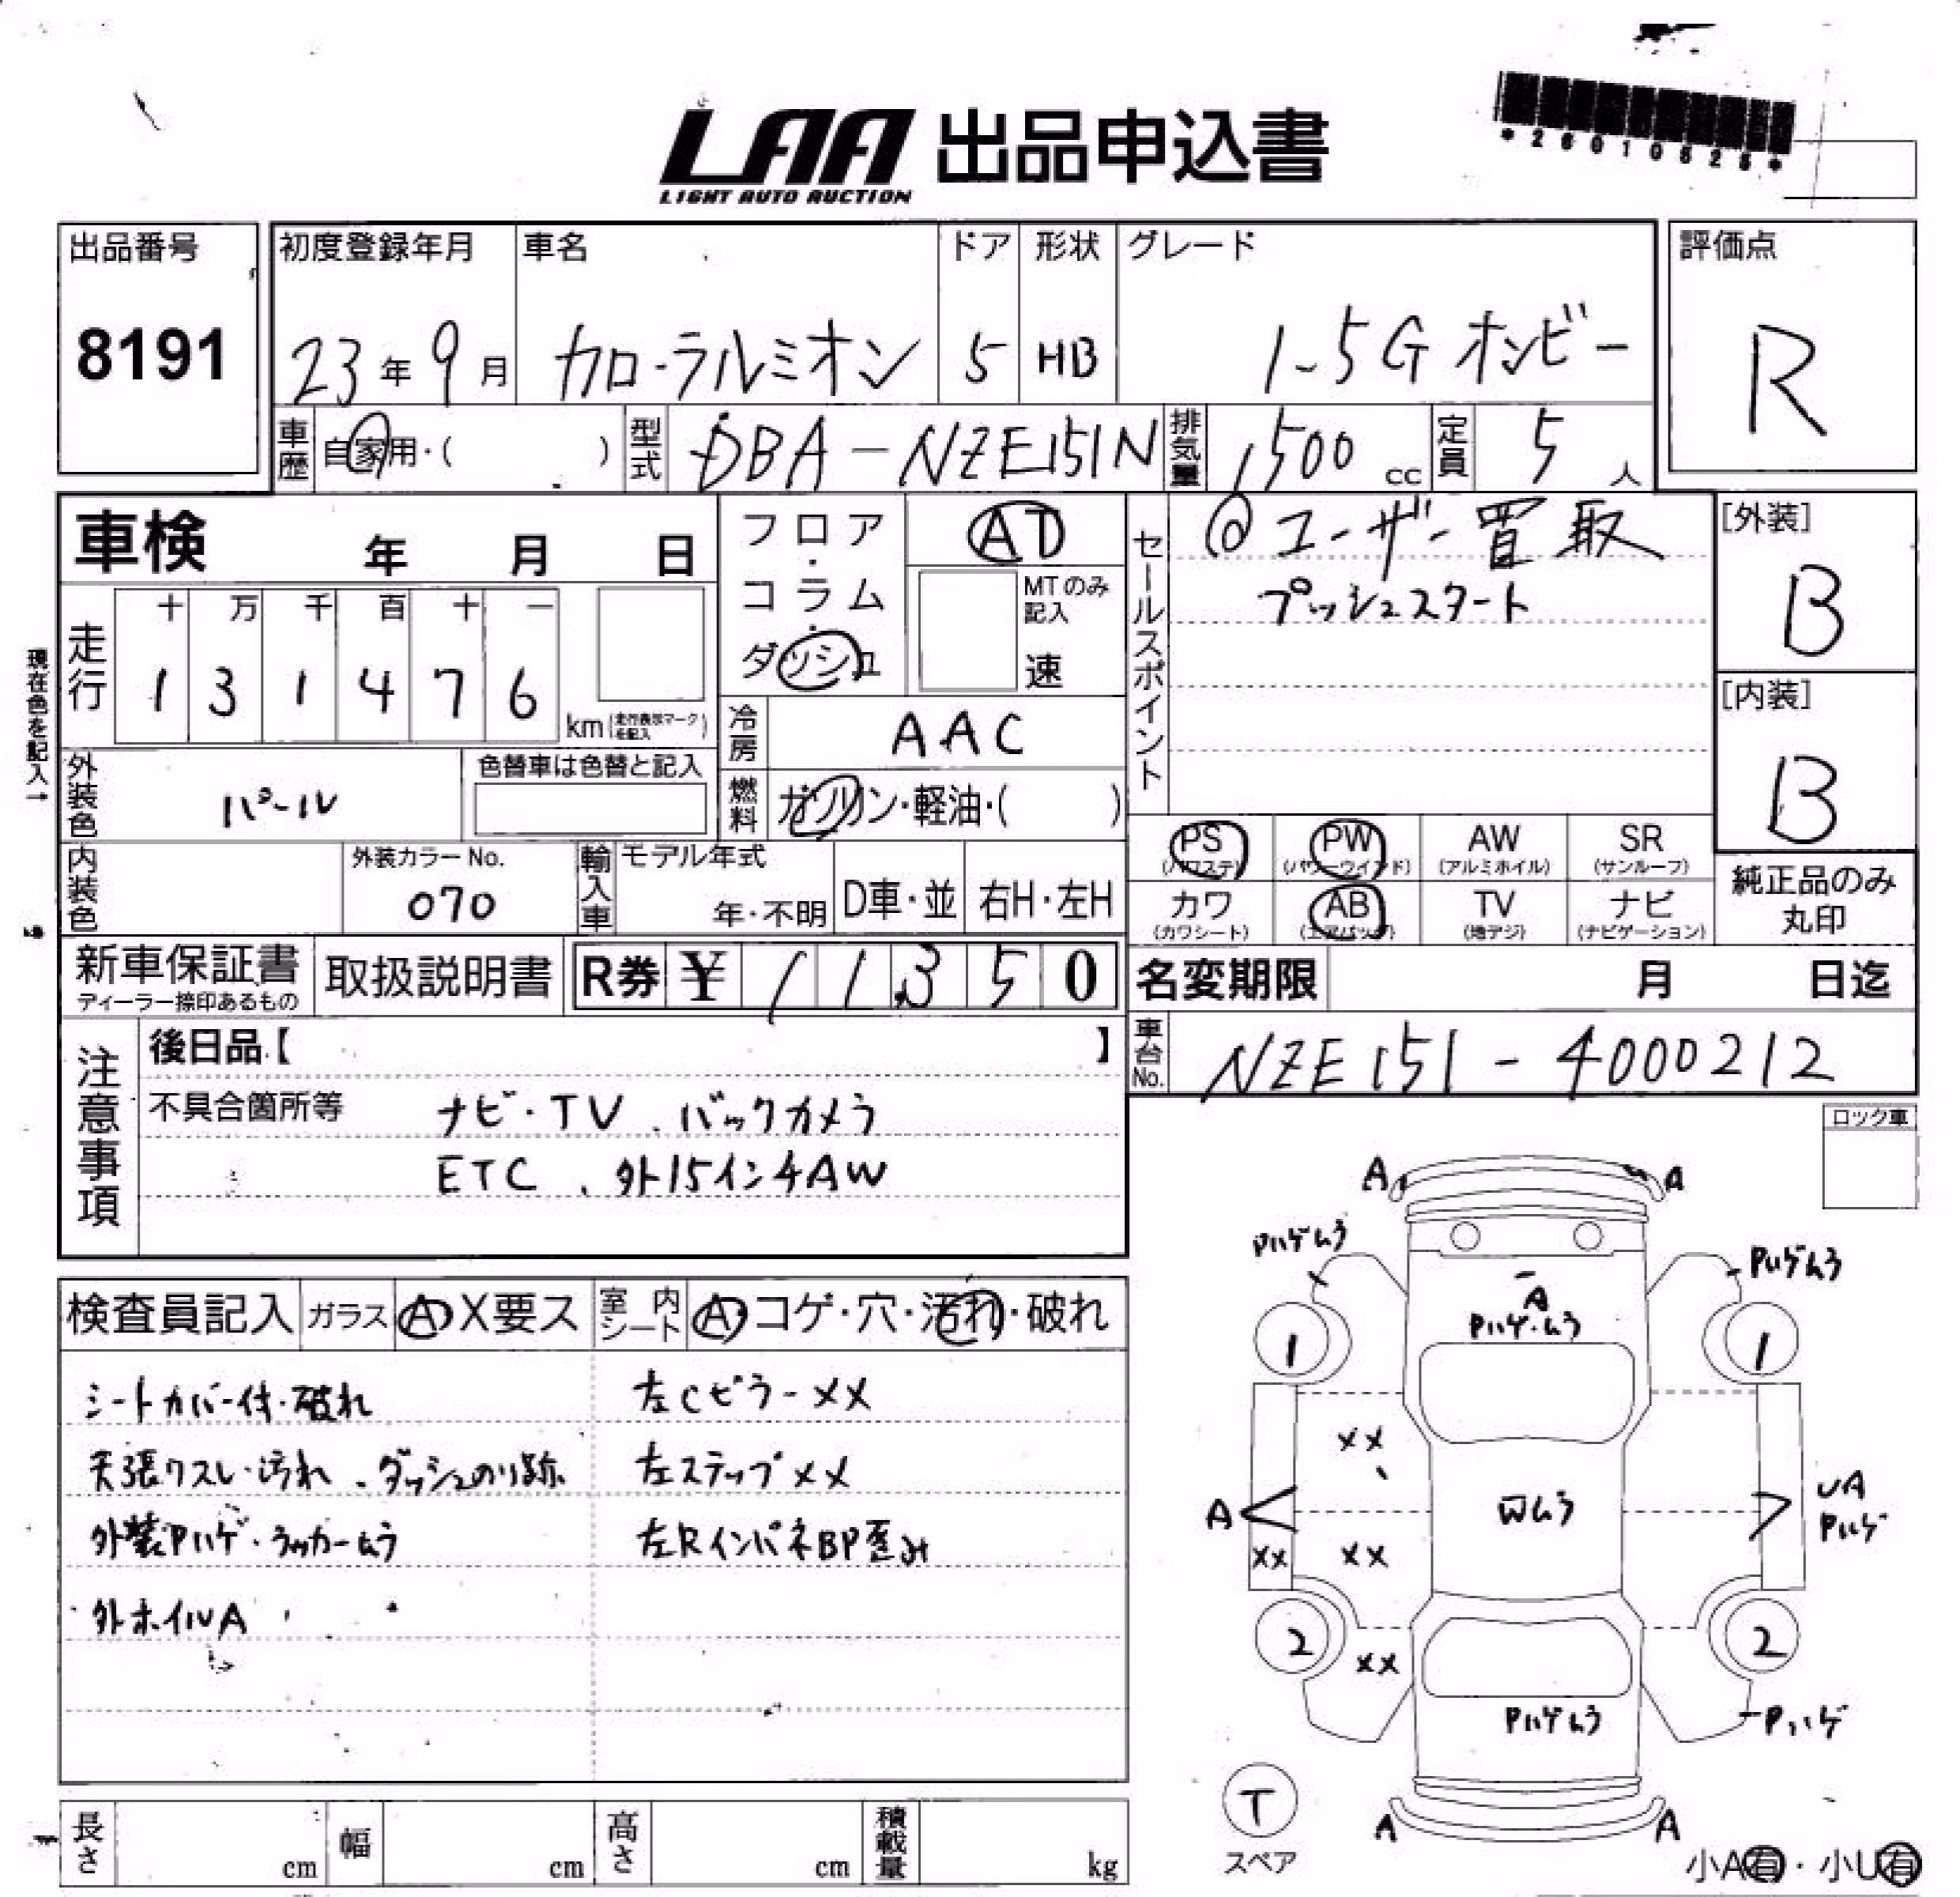 LAA 出品申込書
LIGHT AUTO AUCTION
*26010525*
出品番号
8191
初度登録年月
23年9月
車名
カローラルミオン
ドア
5
形状
HB
グレード
1-5G オンビー
評価点
R
車歴 自家用・( )
型式 DBA-NZE151N
排気量 1500 cc
定員 5 人
車検 年 月 日
フロア・コラム・ダッシュ
AT
MTのみ記入
速
セールスポイント
@ユーザー買取
プッシュスタート
[外装]
B
[内装]
B
現在色を記入→
走行
十 万 千 百 十 一
1 3 1 4 7 6 km(走行表示マークを記入)
冷房 AAC
外装色 パール
色替車は色替と記入
燃料 ガソリン・軽油・( )
PS (パワステ)
PW (パワーウインド)
AW (アルミホイル)
SR (サンルーフ)
カワ (カワシート)
AB (エアバッグ)
TV (地デジ)
ナビ (ナビゲーション)
純正品のみ
丸印
内装色
外装カラーNo.
070
輸入車
モデル年式
年・不明
D車・並
右H・左H
新車保証書
ディーラー捺印あるもの
取扱説明書
R券 ¥ 1 1 3 5 0
名変期限 月 日迄
車台No. NZE151-4000212
注意事項
後日品【 】
不具合箇所等 ナビ・TV、バックカメラ
ETC、外15インチAW
ロック車
検査員記入
ガラス A X要ス
室内シート A・コゲ・穴・汚れ・破れ
シートカバー付・破れ
天張クスレ・汚れ、ダッシュのり跡
外装Pハゲ・ラッカームラ
外ホイルA
左CピラーXX
左ステップXX
左RインパネBP歪み
A A
Pハゲムラ
Pハゲムラ
A
Pハゲ・ムラ
1 1
XX
A
XX XX
Wムラ
UA
Pハゲ
2 2
XX
Pハゲムラ
Pハゲ
T
スペア
A A
小A有・小U有
長さ cm
幅 cm
高さ cm
積載量 kg